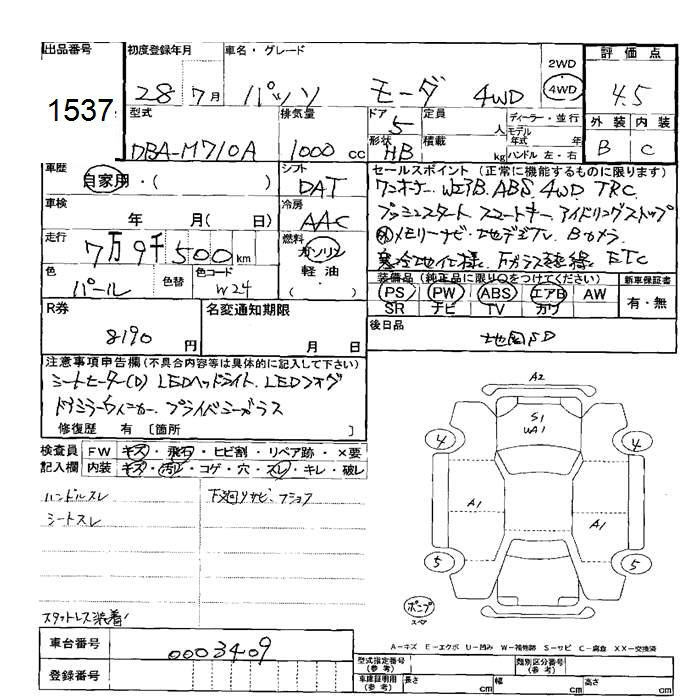 出品番号 初度登録年月 車名・グレード 2WD 評価点
1537 28年7月 パッソ モーダ 4WD 4WD 4.5
型式 排気量 ドア 定員 ディーラー・並行 外装 内装
DBA-M710A 1000 cc 5 人 モデル年式 年 B C
形状 積載 HB kg ハンドル 左・右
車歴 シフト セールスポイント (正常に機能するものに限ります)
自家用・( ) DAT ワンオーナー. WエアB. ABS. 4WD TRC.
車検 冷房 プッシュスタート スマートキー. アイドリングストップ
年 月( 日) AAC メモリーナビ. 地デジTV. Bカメラ
走行 燃料 寒冷地仕様. ETC
7万9千500km ガソリン 軽油・( )
色 色替 色コード 装備品 (純正品に限り○をつけてください) 新車保証書
パール W24 PS PW ABS エアB AW 有・無
SR ナビ TV カワ
R券 名変通知期限 後日品
8190円 月 日 地図SD
注意事項申告欄(不具合内容等は具体的に記入して下さい)
シートヒーター(D) LEDヘッドライト. LEDフォグ
ドアミラーウィンカー. プライバシーガラス
修復歴 有 [箇所 ]
検査員 FW キズ・飛石・ヒビ割・リペア跡・×要
記入欄 内装 キズ・汚レ・コゲ・穴・スレ・キレ・破レ
ハンドルスレ 下廻りサビ、フショク
シートスレ
A2
S1
WA1
4 4
A1 A1
5 5
ポンプ
スタットレス装着!
A-キズ E-エクボ U-凹み W-補修跡 S-サビ C-腐食 XX-交換済
車台番号 0003409
型式指定番号(参考) 類別区分番号(参考)
登録番号 車庫証明用(参考) 長さ cm 幅 cm 高さ cm